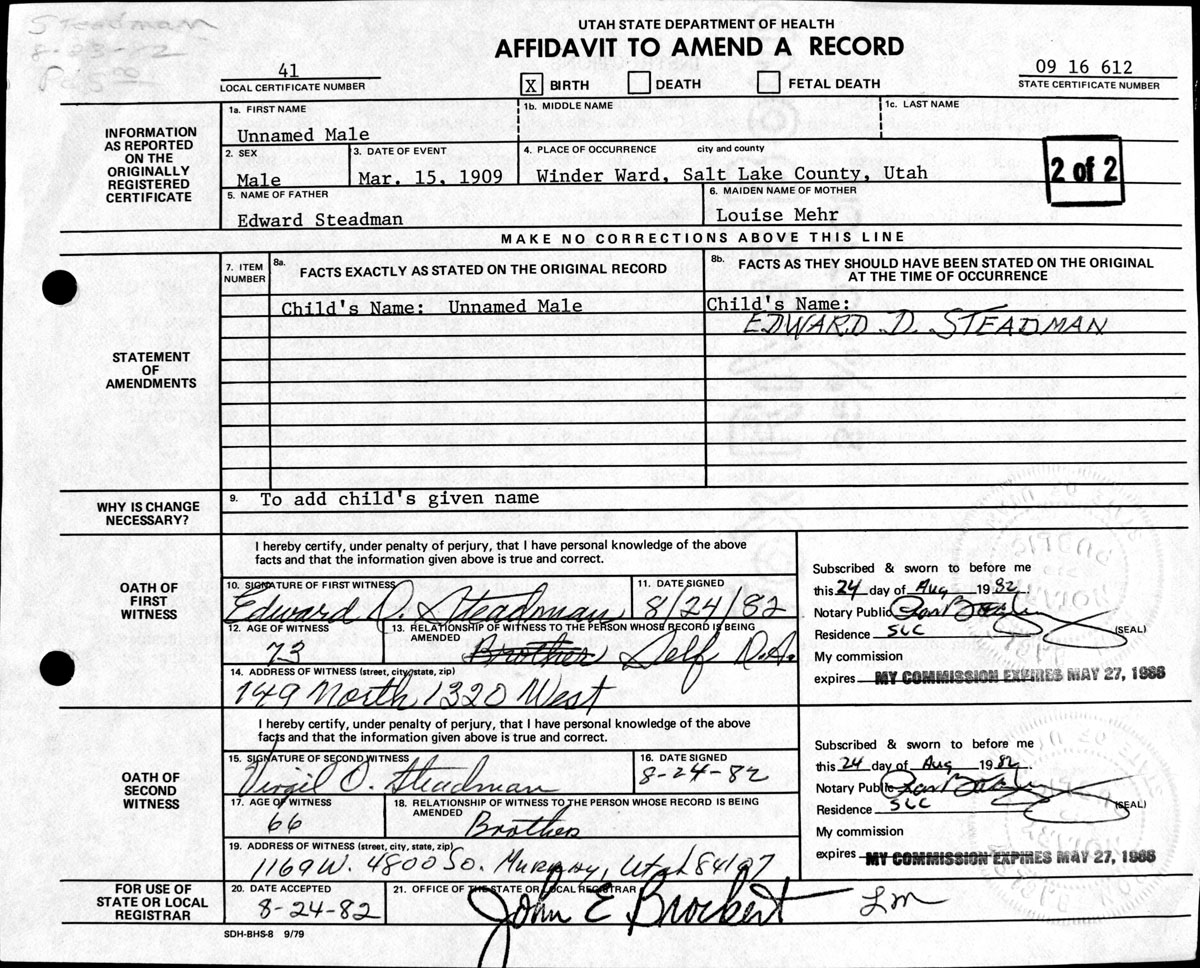 Steadman
8-23-82
Pd 5.00
UTAH STATE DEPARTMENT OF HEALTH
AFFIDAVIT TO AMEND A RECORD
41
LOCAL CERTIFICATE NUMBER
X BIRTH DEATH FETAL DEATH
09 16 612
STATE CERTIFICATE NUMBER
INFORMATION AS REPORTED ON THE ORIGINALLY REGISTERED CERTIFICATE
1a. FIRST NAME 1b. MIDDLE NAME 1c. LAST NAME
Unnamed Male
2. SEX 3. DATE OF EVENT 4. PLACE OF OCCURRENCE city and county
Male Mar. 15, 1909 Winder Ward, Salt Lake County, Utah
2 of 2
5. NAME OF FATHER 6. MAIDEN NAME OF MOTHER
Edward Steadman Louise Mehr
MAKE NO CORRECTIONS ABOVE THIS LINE
STATEMENT OF AMENDMENTS
7. ITEM NUMBER
8a. FACTS EXACTLY AS STATED ON THE ORIGINAL RECORD
8b. FACTS AS THEY SHOULD HAVE BEEN STATED ON THE ORIGINAL AT THE TIME OF OCCURRENCE
Child's Name: Unnamed Male Child's Name:
EDWARD D. STEADMAN
WHY IS CHANGE NECESSARY?
9. To add child's given name
OATH OF FIRST WITNESS
I hereby certify, under penalty of perjury, that I have personal knowledge of the above
facts and that the information given above is true and correct.
10. SIGNATURE OF FIRST WITNESS 11. DATE SIGNED
Edward D. Steadman 8/24/82
12. AGE OF WITNESS 13. RELATIONSHIP OF WITNESS TO THE PERSON WHOSE RECORD IS BEING AMENDED
73 Brother Self D.A.
14. ADDRESS OF WITNESS (street, city, state, zip)
149 North 1320 West
Subscribed & sworn to before me
this 24 day of Aug 1982.
Notary Public
Residence SLC (SEAL)
My commission
expires MY COMMISSION EXPIRES MAY 27, 1986
OATH OF SECOND WITNESS
I hereby certify, under penalty of perjury, that I have personal knowledge of the above
facts and that the information given above is true and correct.
15. SIGNATURE OF SECOND WITNESS 16. DATE SIGNED
Virgil O. Steadman 8-24-82
17. AGE OF WITNESS 18. RELATIONSHIP OF WITNESS TO THE PERSON WHOSE RECORD IS BEING AMENDED
66 Brother
19. ADDRESS OF WITNESS (street, city, state, zip)
1169 W. 4800 So. Murray, Utah 84107
Subscribed & sworn to before me
this 24 day of Aug 1982.
Notary Public
Residence SLC (SEAL)
My commission
expires MY COMMISSION EXPIRES MAY 27, 1986
FOR USE OF STATE OR LOCAL REGISTRAR
20. DATE ACCEPTED 21. OFFICE OF THE STATE OR LOCAL REGISTRAR
8-24-82 John E Brockert Lm
SDH-BHS-8 9/79